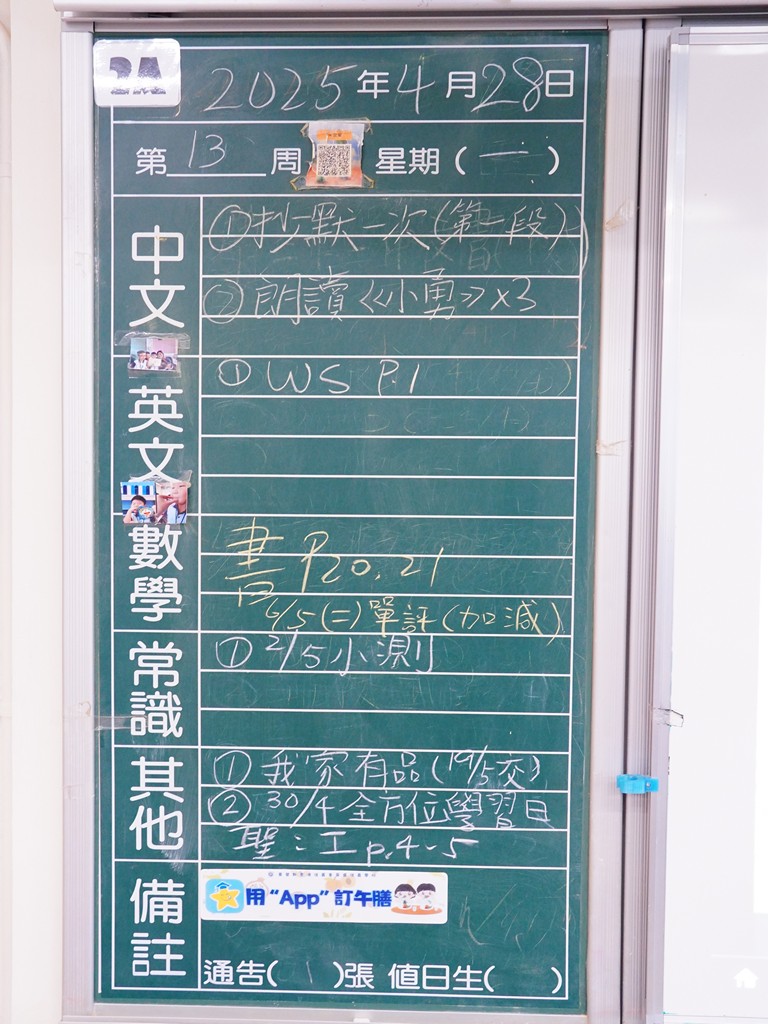 2A
2025年4月28日
第13周 星期(一)
中文
①抄默一次(第二段)
②朗讀《小勇》x3
英文
①WS P.1
數學
書 P20, 21
6/5(二)單評(加減)
常識
①2/5小測
其他
①我家有品(19/5交)
②30/4全方位學習日
聖:工p.4-5
備註
用“App”訂午膳
通告( )張 值日生( )